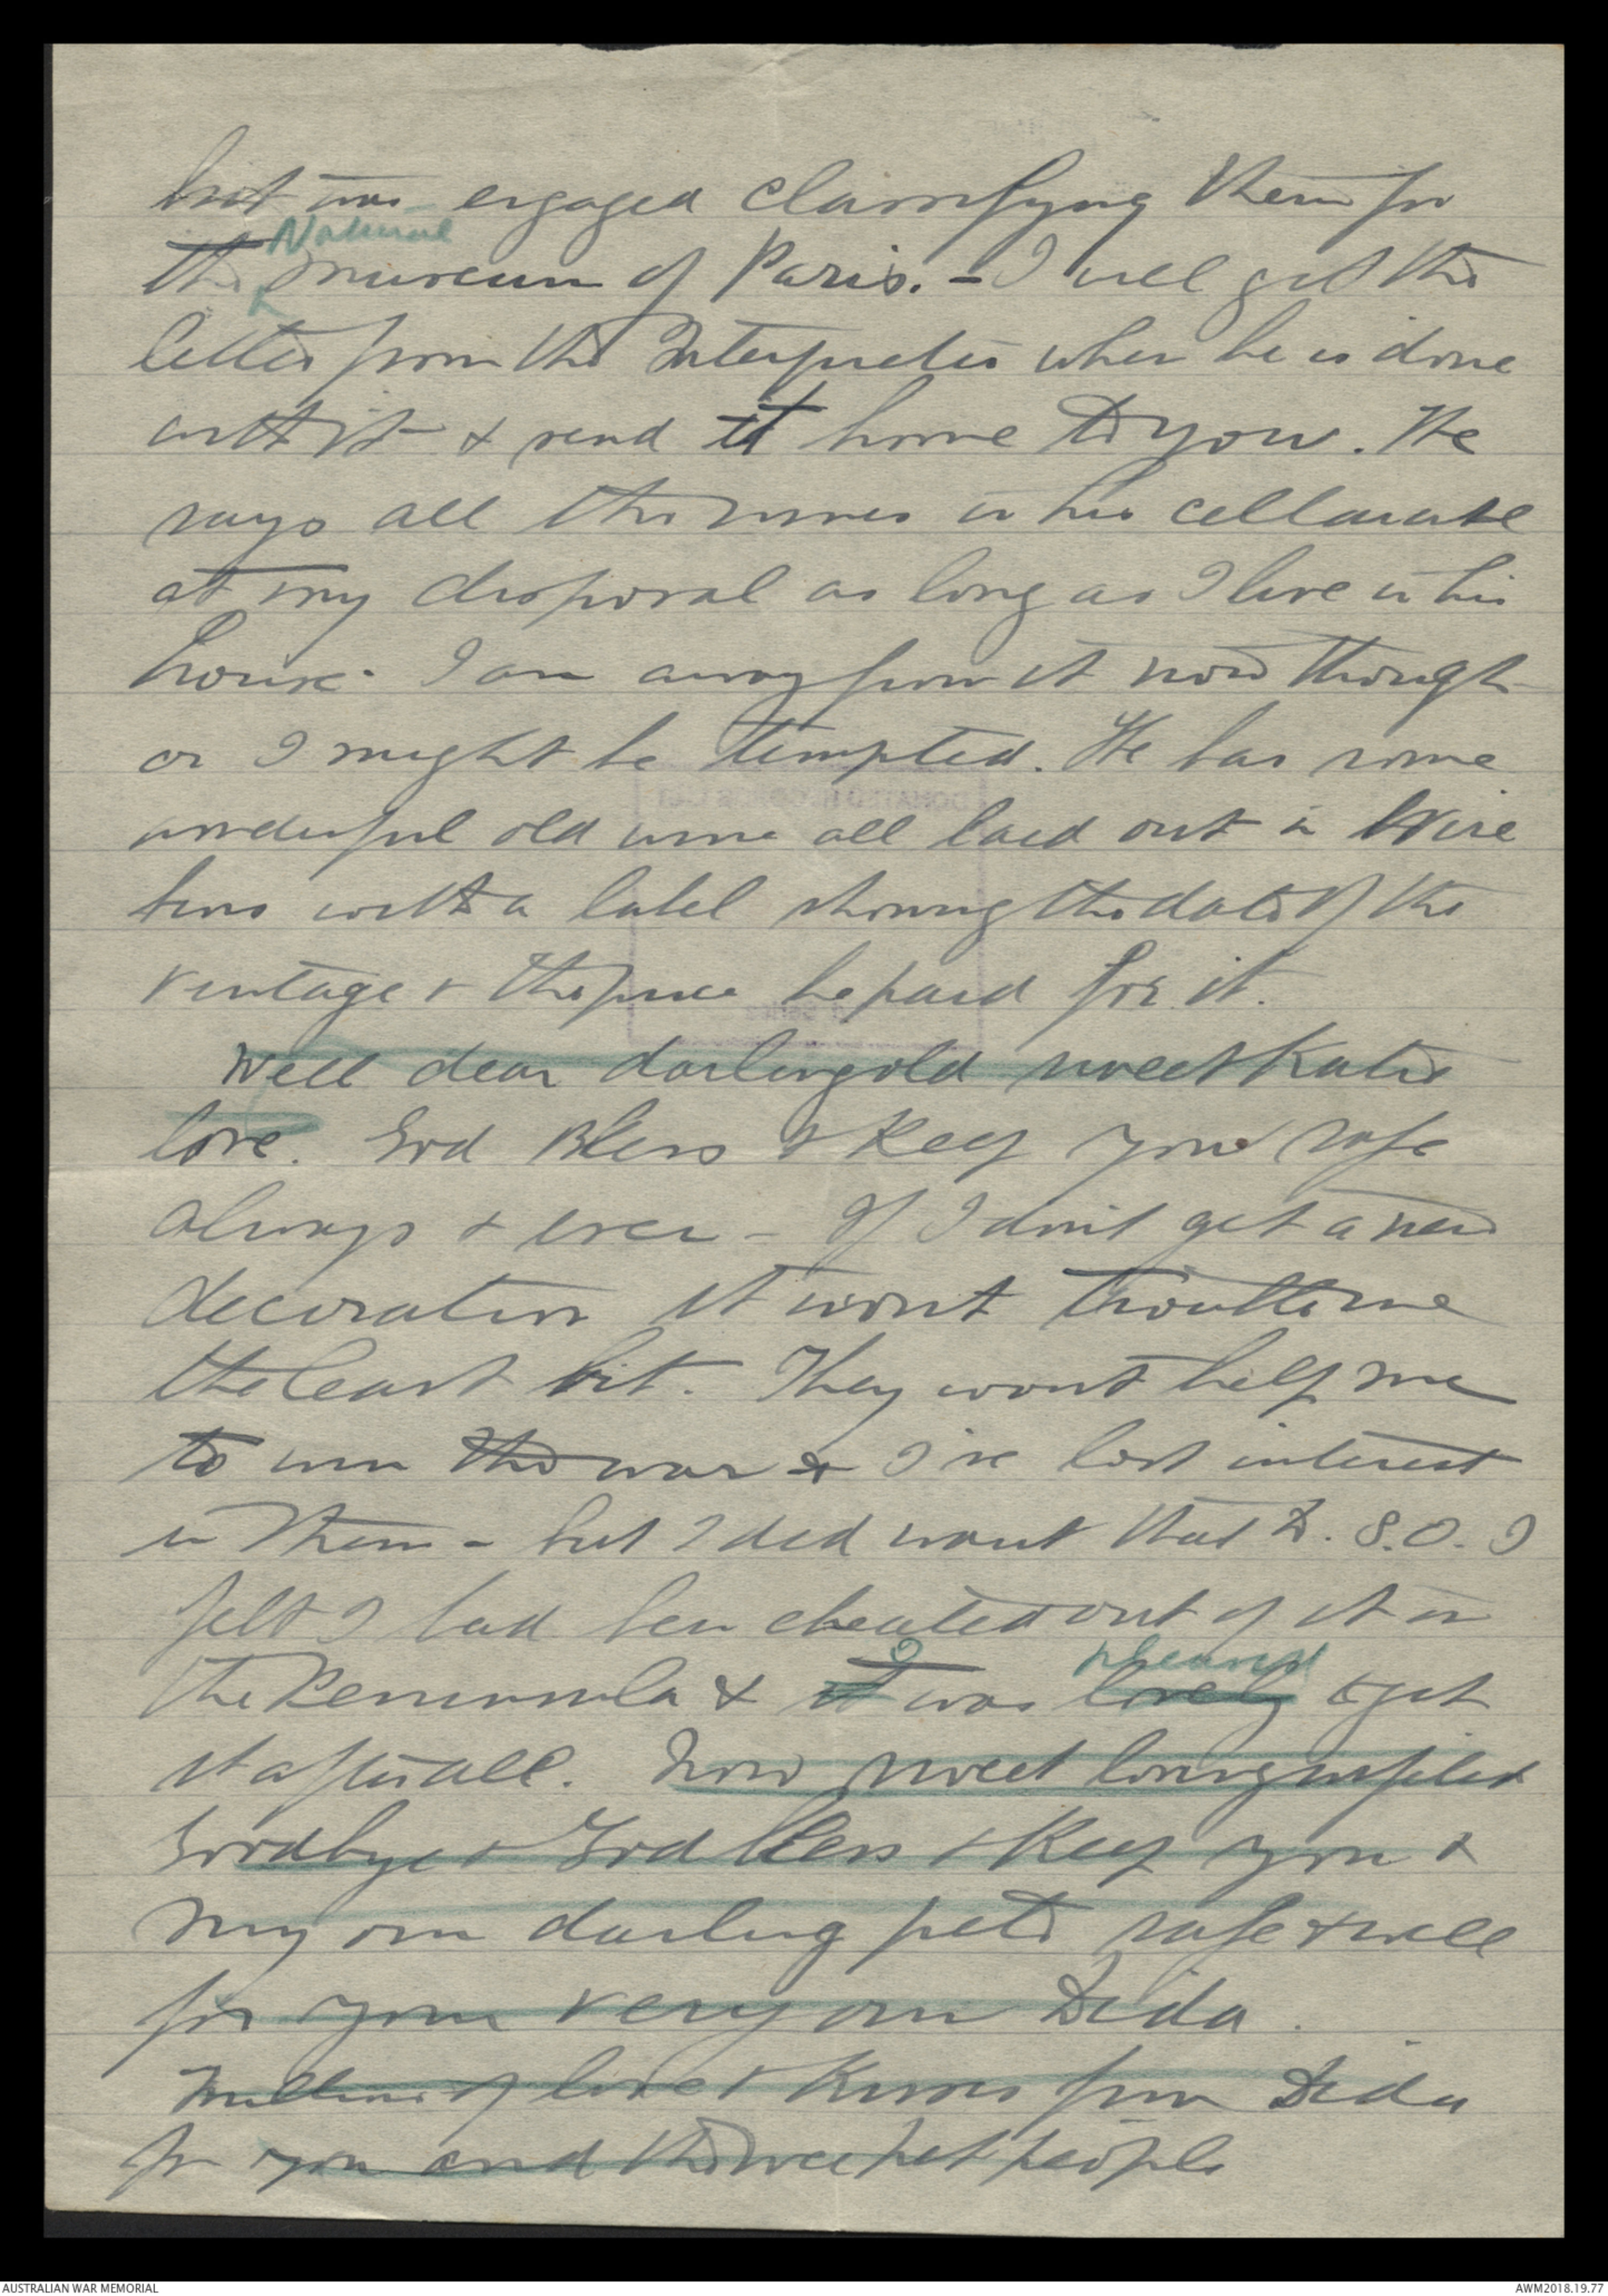 but was engaged classifying them for
Natural
the museum of Paris. - I will get the
letter from the Interpreter when he is done
with it & send it home to you. He
says all the wines in his cellar are
at my disposal as long as I live in his
house. I am away from it now though
or I might be tempted. He has some
wonderful old wine all laid out in Wire
bins with a label showing the date of the
vintage & the price he paid for it.
Well dear darling old sweet Katie
love. God Bless & Keep you safe
always & ever - If I dont get a new
decoration it wont trouble me
the least bit. They wont help me
to win the war & I've lost interest
in them - but I did want that D.S.O. I
felt I had been cheated out of it on
pleased
the Peninsula & I was lovely to get
it after all. Now sweet loving wifelet
Goodbye & God bless & Keep you &
my own darling pets safe & well
for your very own Dida.
Millions of love & Kisses from Dida
for you and the wee pet people
AUSTRALIAN WAR MEMORIAL
AWM2018.19.77